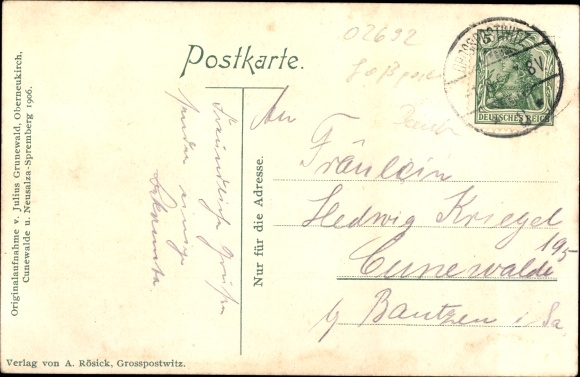 Postkarte.
02692
GROSSPOSTWITZ
DEUTSCHES REICH
Originalaufnahme v. Julius Grunewald, Oberneukirch,
Cunewalde u. Neusalza-Spremberg 1906.
Freundliche Grüße
einige
Bekannte
Nur für die Adresse.
An
Fräulein
Hedwig Kriegel
195
Cunewalde
b/ Bautzen i. Sa.
Verlag von A. Rösick, Grosspostwitz.